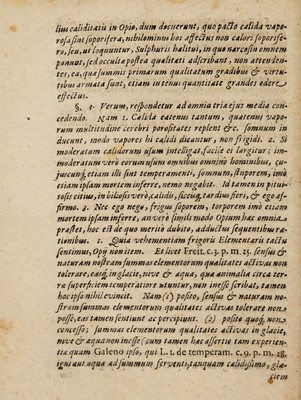 lius caliditatis in Opio, dum docuerunt, quo pacto calida vapo-
rosa sint soporifera, nihilominus hos affectus non calori soporife-
ro, seu, ut loquuntur, Sulphuris halitui, in quo narcosin omnem
ponunt, sed occulta postea qualitati adscribant, non attenden-
tes, ea, quæ summis primarum qualitatum gradibus & virtu-
tibus armata sunt, etiam in tenui quantitate grandes edere
effectus.
§. 2. Verum, respondetur ad omnia tria ejus media con-
cedendo. Nam 1. Calida eatenus tantum, quatenus vapo-
rum multitudine cerebri porositates replent &c. somnum in-
ducunt, modo vapores hi calidi dicantur, non frigidi. 2. Si
moderatum calidorum usum intelligat, facile ei largitur: im-
moderatum verò eorum usum omnibus omninò hominibus, cu-
juscunq; etiam illi sint temperamenti, somnum, stuporem, imò
etiam ipsam mortem inferre, nemo negabit. Id tamen in pitui-
tosis citius, in biliosis verò, calidis, siccisq; tardius fieri, & ego af-
firmo. 2. Nec ego nego, frigus soporem, torporem imò etiam
mortem ipsam inferre, an verò simili modo Opium hac omnia
præstet, hoc est de quo meritò dubito, adductus sequentibus ra-
tionibus. 1. Quia vehementiam frigoris Elementaris tactu
sentimus, Opij non item. Etsi cet Freit. c. 3. p. m. 25. sensus &
naturam nostram summas elementorum qualitates activas non
tolerare, easq; in glacie, nive & aqua, qua animalia circa ter-
ra superficiem temperatiore utuntur, non inesse scribat, tamen
hoc ipsò nihil evincit. Nam (1) posito, sensus & naturam no-
stram summas elementorum qualitates activas tolerare non
posse, eas tamen sentiunt ac percipiunt. (2) posito quoq; non
concesso; summas elementorum qualitates activas in glacie,
nive & aqua non inesse (cum tamen hac assertio tam experien-
tia quam Galeno ipsi, qui L. 1. de temperam. c. 9. p. m. 28.
igni aut aqua ad summum serventi, tanquam calidissimo, gla-
ciem